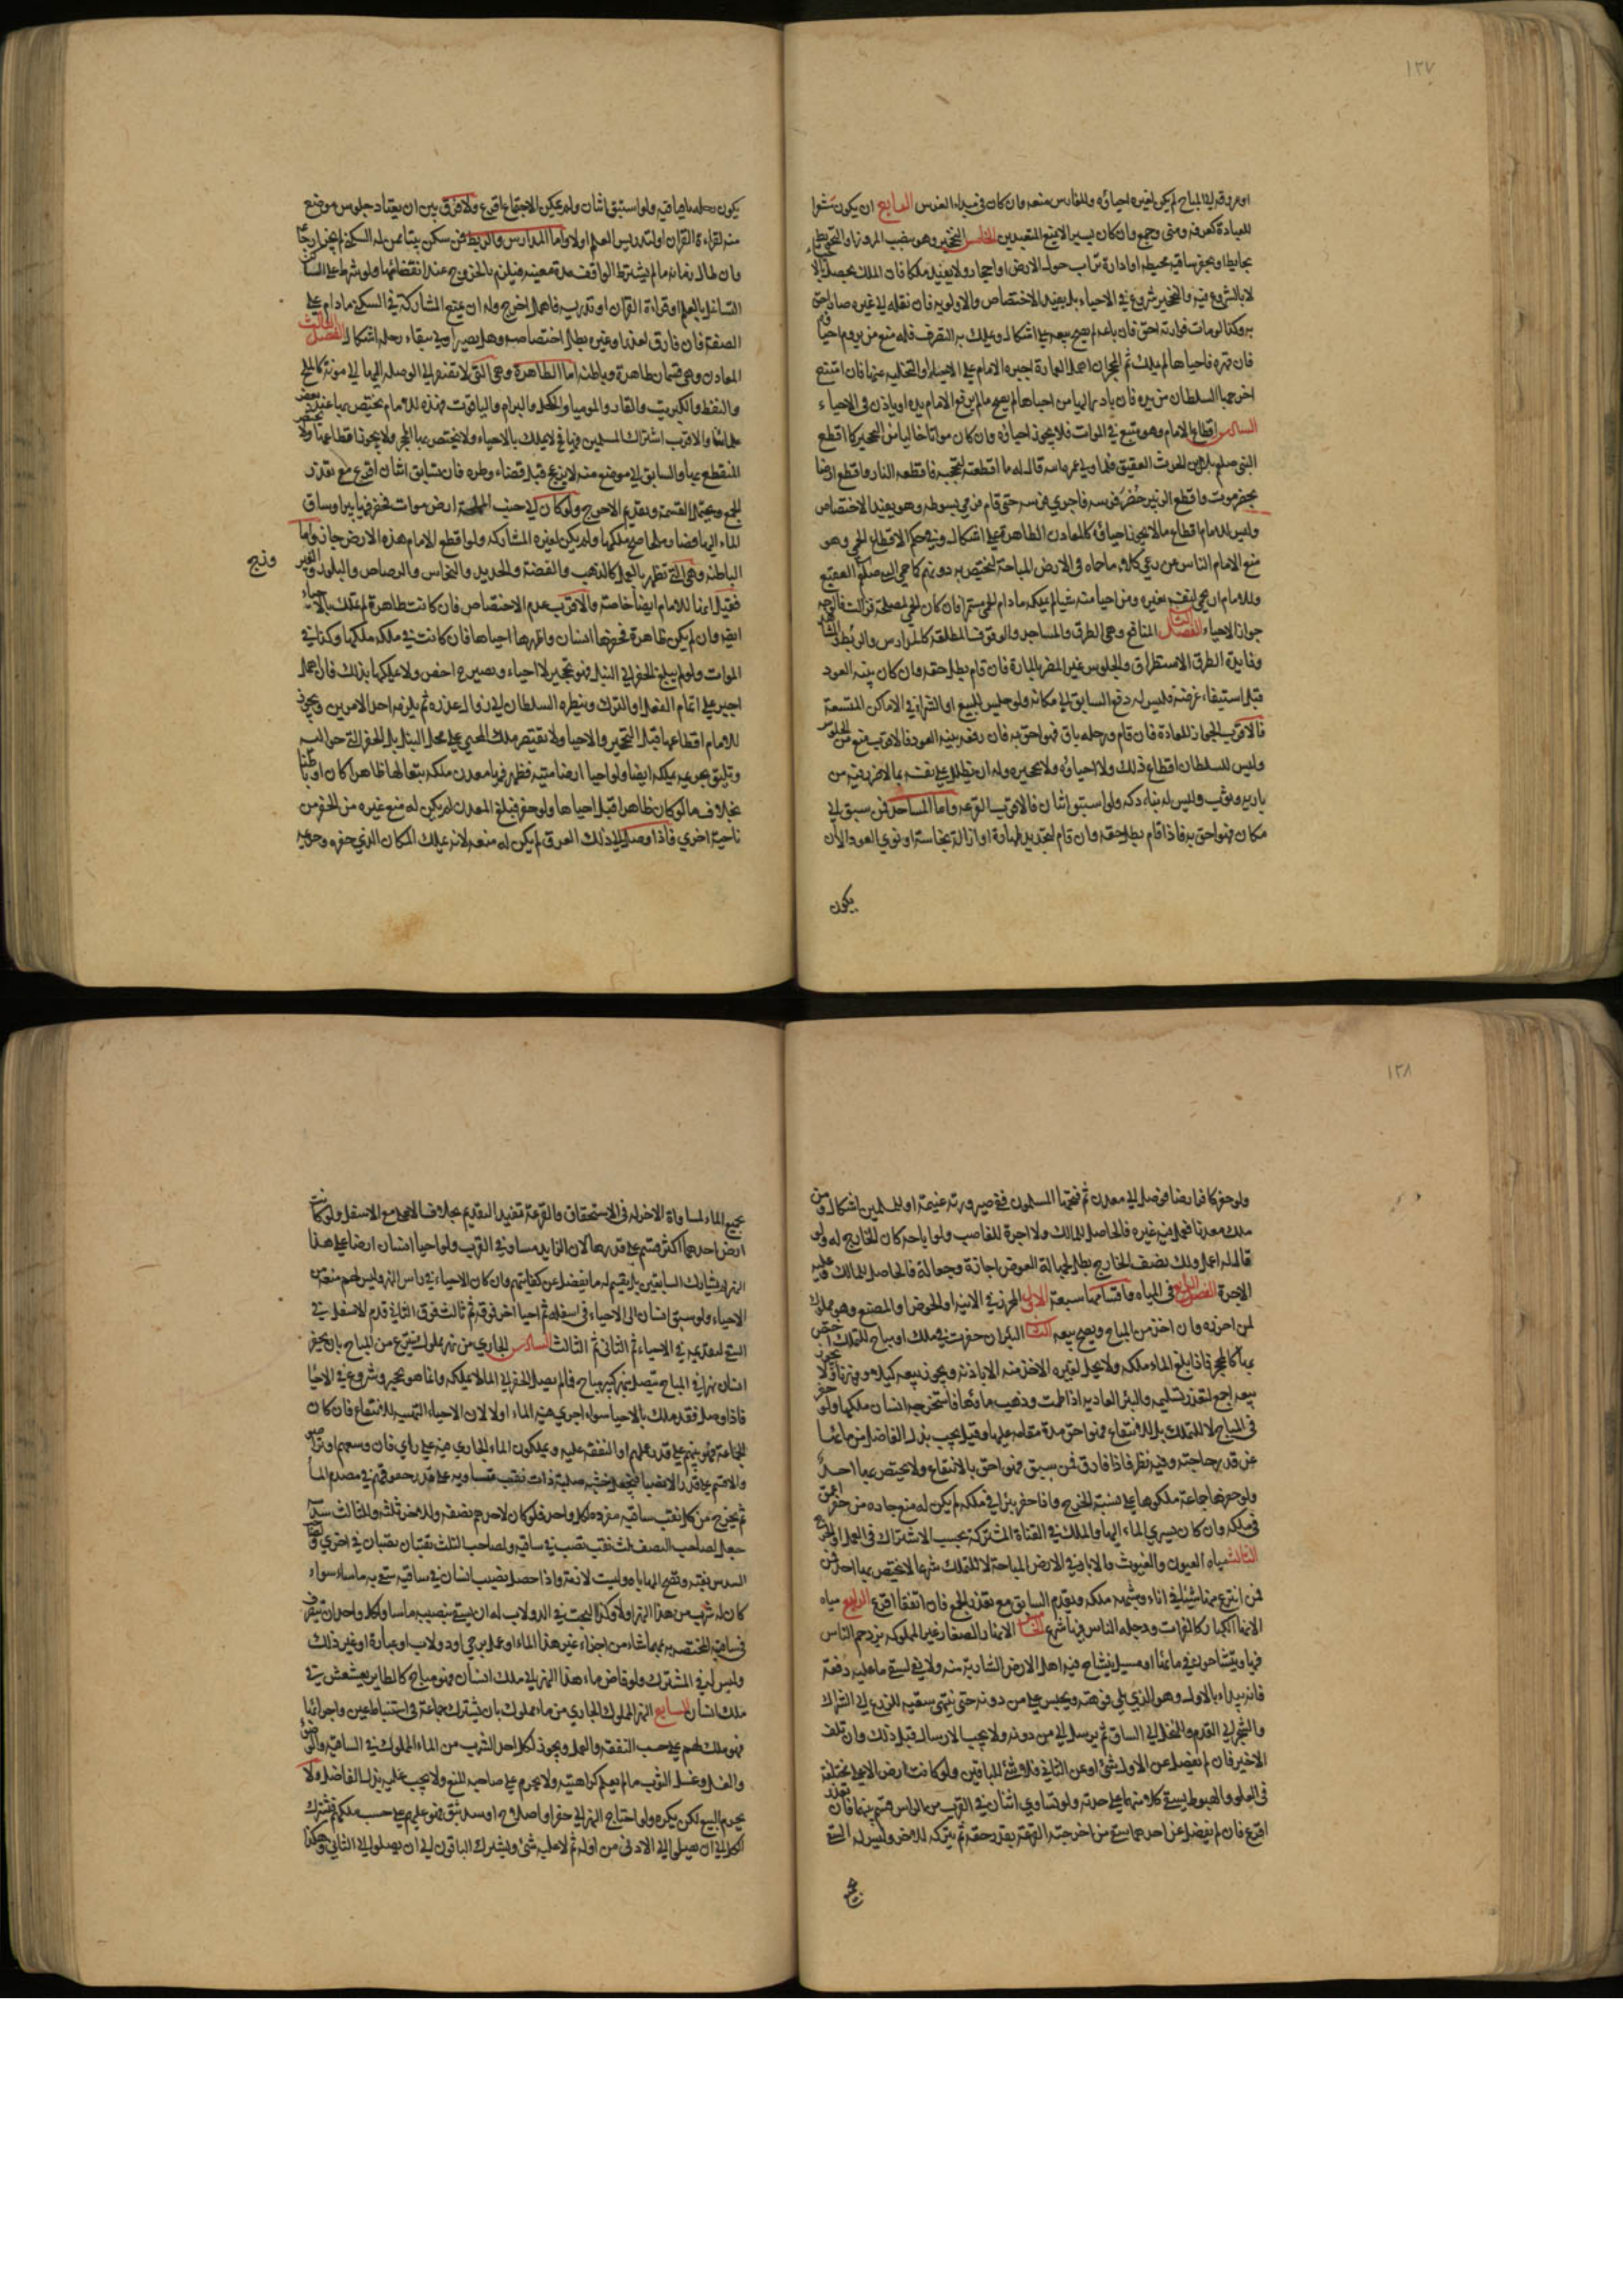 ١٢٧
او عروقه الى المباح لم يكن لغيره احياؤه وللغارس منعه وان كان في مبداء الغرس الرابع ان يكون مشعرا
للعبادة كعرفه ومنى وجمع وان كان يسيرا لا يمنع المتعبدين الخامس التحجير وهو بنصب المروز او التحويط
بحايط او بحفر ساقيه محيطه او ادارة تراب حول الارض او احجار ولا يفيد ملكا فان الملك يحصل بالاحياء
لا بالشروع فيه والتحجير شروع في الاحياء بل يفيد الاختصاص والاولويه فان نقله الى غيره صار احق
به وكذا لو مات فوارثه احق فان باعه لم يصح بيعه على اشكال ويملك به التصرف فله منع من يروم احياء
فان قهره فاحياها لم يملك ثم المحجر ان اهمل العمارة اجبره الامام على الاحياء او التخليه عنها فان امتنع
اخرجها السلطان من يده فان بادر اليها من احياها لم يصح ما لم يرفع الامام يده او ياذن في الاحياء
السادس اقطاع الامام وهو متبع في الموات فلا يجوز احياؤه وان كان مواتا خاليا من التحجير كما اقطع
النبي صلعم بلال بن الحرث العقيق فلما ولي عمر قال له ما اقطعته لتحجبه فاقطعه الناس واقطع ارضا
بحضرموت واقطع الزبير حُضرَ فرسه فاجرى فرسه حتى قام فرمى بسوطه وهو يفيد الاختصاص
وليس للامام اقطاع ما لا يجوز احياؤه كالمعادن الظاهرة على اشكال وفي حكم الاقطاع الحمى وهو
منع الامام الناس عن رعي كلاء ما حماه في الارض المباحة ليختص به دونهم كما حمى النبي صلعم النقيع
وللامام ان يحمي لنفسه ولغيره ومن احيا منه شيئا لم يملكه ما دام الحمى مستمرا فان كان الحمى لمصلحة فزالت فالوجه
جواز الاحياء الفصل الثاني المنافع وهي الطرق والمساجد والوقوف المطلقه كالمدارس والربُط
وفايدة الطرق الاستطراق والجلوس غير المضر بالمارة فان قام بطل حقه وان كان بنيه العود
قبل استيفاء غرضه وليس له دفع السابق الى مكانه ولو جلس للبيع او الشراء في الاماكن المتسعة
فالاقرب الجواز للعادة فان قام ورحله باق فهو احق به فان رفعه بنيه العود فالاقرب
وليس للسلطان اقطاع ذلك ولا احياؤه ولا تحجيره وله ان يظلل على نفسه بما لا ضرر فيه من
باريه وثوب وليس له بناء دكه ولو استبق اثنان فالاقرب القرعه واما المساجد فمن سبق الى
مكان فهو احق به فاذا قام بطل حقه وان قام لتجديد طهارة او ازالة نجاسة او نوى العود الا ان
يكون
يكون رحله باقيا فيه ولو استبق اثنان ولم يمكن الاجتماع اقرع ولا فرق بين ان يعتاد جلوس موضع
منه لقراءة القران او لتدريس العلم او لا واما المدارس والربط فمن سكن بيتا ممن له السكنى لم يجز ازعاجه
وان طال زمانه ما لم يشترط الواقف مدة معينه فيلزم بالخروج عند انقضائها ولو شرط على الساكن
التشاغل بالعلم او قراءة القران او تدريسه فاهمل اخرج وله ان يمنع المشاركة في السكنى ما دام على
الصفة فان فارق لعذر او غيره بطل اختصاصه وهل يصير اولى ببقاء رحله اشكال الفصل الثالث
المعادن وهي قسمان ظاهرة وباطنه اما الظاهرة وهي التي لا تفتقر في الوصلة اليها الى مونة كالملح
والنفط والكبريت والقار والمومياء والكحل والبرام والياقوت فهذه للامام يختص بها عند بعض
علمائنا والاقرب اشتراك المسلمين فيها فح لا يملك بالاحياء ولا يختص بها المحجر ولا يجوز اقطاعها ولا يختص
المقطع بها والسابق الى موضع منه لا يزعج قبل قضاء وطره فان تسابق اثنان اقرع مع تعذر
الجمع ويحتمل القسمه وتقديم الاحوج ولو كان الى جنب المملحة ارض موات فحفر فيها بيرا وساق
الماء اليها وصار ملحا صح ملكها ولم يكن لغيره المشاركه ولو اقطع الامام هذه الارض جاز واما
الباطنه وهي التي تظهر بالعمل كالذهب والفضة والحديد والنحاس والرصاص والبلور والفير
وزج
فقيل انها للامام ايضا خاصة والاقرب عدم الاختصاص فان كانت ظاهرة لم تملك بالاحياء
ايضا وان لم يكن ظاهرة فحفرها انسان واظهرها احياها فان كانت في ملكه ملكها وكذا في
الموات ولو لم يبلغ الحفر الى النيل فهو تحجير لا احياء ويصير ح اخص ولا يملكها بذلك فان اهمل
اجبر على اتمام العمل او الترك وينظره السلطان الى زوال عذره ثم يلزمه احد الامرين ويجوز
للامام اقطاعها قبل التحجير والاحياء ولا يقتصر ملك المحيي على محل النيل بل الحفر التي حواليه
وتليق بحريمه يملكه ايضا ولو احيا ارضا ميته فظهر فيها معدن ملكه تبعا لها ظاهرا كان او باطنا
بخلاف ما لو كان ظاهرا قبل احياها ولو حفر فبلغ المعدن لم يكن له منع غيره من الحفر من
ناحية اخرى فاذا وصل الى ذلك العرق لم يكن له منعه لانه يملك المكان الذي حفره وحريمه
١٢٨
ولو حفر كافر ارضا فوصل الى معدن ثم فتحها المسلمون ففي صيرورته غنيمة او للمسلمين اشكال ومن
ملك معدنا فعمل فيه غيره فالحاصل للمالك ولا اجرة للغاصب ولو اباحه كان الخارج له ولو
قال له اعمل ولك نصف الخارج بطل لجهالة العوض اجارة وجعالة فالحاصل للمالك وعليه
الاجرة الفصل الرابع في المياه واقسامها سبعة الاول المحرز في الانية او الحوض او المصنع وهو مملوك
لمن احرزه وان اخذ من المباح ويصح بيعه الثاني البئر ان حفرت في ملك او مباح للتملك اختص
بها كالمحجر فاذا بلغ الماء ملكه ولا يحل لغيره الاخذ منه الا باذنه ويجوز بيعه كيلا ووزنا ولا يجوز
بيعه اجمع لتعذر تسليمه والبئر العاديه اذا طمت وذهب ماؤها فاستخرجه انسان ملكها ولو حفر
في المباح لا للتملك بل للانتفاع فهو احق مدة مقامه عليها وقيل يجب بذل الفاضل من مائها
عن قدر حاجته وفيه نظر فاذا فارق فمن سبق فهو احق بالانتفاع ولا يختص بها احد
ولو حفرها جماعة ملكوها على نسبة الخرج واذا حفر بئرا في ملكه لم يكن له منع جاره من حفر اعمق
في ملكه وان كان يسري الماء اليها والملك في القناة المشتركة بحسب الاشتراك في العمل او الخرج
الثالث مياه العيون والغيوث والابار في الارض المباحة لا للتملك شرعا لا يختص بها احد
فمن انتزع منها شيئا في اناء وشبهه ملكه ويقدم السابق مع تعذر الجمع فان اتفقا اقرع الرابع مياه
الانهار الكبار كالفرات ودجله الناس فيها شرع الخامس الانهار الصغار غير المملوكه يزدحم الناس
فيها ويتشاحون في مائها او مسيل يتشاح فيه اهل الارض الشاربة منه ولا يفي لسقي ما عليه دفعة
فانه يبداء بالاول وهو الذي يلي فوهته ويحبس على من دونه حتى ينتهي سقيه للزرع الى الشراك
والشجر الى القدم والنخل الى الساق ثم يرسل الى من دونه ولا يجب الارسال قبل ذلك وان تلف
الاخير فان لم يفضل عن الاول شئ او عن الثاني فلا شئ للباقين ولو كانت ارض الاعلى مختلفة
في العلو والهبوط يسقي كلا منهما على حدته ولو تساوى اثنان في القرب من الراس قسم بينهما فان تعذر
اقرع فان لم يفضل عن احدهما سقى من اخرجته القرعة بقدر حقه ثم يتركه للاخر وليس له السقي
بجميع
بجميع الماء لمساواة الاخر له في الاستحقاق والقرعة تفيد التقديم بخلاف الاعلى مع الاسفل ولو كانت
ارض احدهما اكثر قسم على قدرها لان الزايد مساو في القرب ولو احيا انسان ارضا على هذا
النهر لم يشارك السابقين بل يقسم له ما يفضل عن كفايتهم وان كان الاحياء في راس النهر وليس لهم منعه من
الاحياء ولو سبق انسان الى الاحياء في اسفله ثم احيا اخر فوقه ثم ثالث فوق الثاني قدم الاسفل في
السقي لتقدمه في الاحياء ثم الثاني ثم الثالث السادس الجاري من نهر مملوك ينتزع من المباح بان يحفر
انسان نهرا في المباح يتصل بنهر كبير مباح فما لم يصل الحفر الى الماء لا يملكه وانما هو تحجير وشروع في الاحياء
فاذا وصل فقد ملك بالاحياء سواء اجرى فيه الماء او لا لان الاحياء التهيئه للانتفاع فان كان
لجماعة فهو بينهم على قدر عملهم او النفقة عليه ويملكون الماء الجاري فيه على راي فان وسعهم او تراضوا
والا قسم على قدر الانصباء فيجعل خشبه صلبة ذات نقب متساويه على قدر حقوقهم في مصدم الماء
ثم يخرج من كل نقب ساقيه مفردة لكل واحد فلو كان لاحدهم نصفه وللاخر ثلثه وللثالث سدسه
جعل لصاحب النصف ثلث نقب تصب في ساقيه ولصاحب الثلث نقبان يصبان في اخرى
كان له شرب من هذا النهر او لا وكذا البحث في الدولاب له ان يسقي بنصيبه ما شاء ولكل واحد ان يتصرف
في ساقيته المختصه به بمهما شاء من اجراء غير هذا الماء او عمل رحى او دولاب او عبارة او غير ذلك
وليس له في المشترك ولو فاض ماء هذا النهر الى ملك انسان فهو مباح كالطاير يعشعش في
ملك انسان السابع النهر المملوك الجاري من ماء مملوك بان يشترك جماعة في استنباط عين واجرائها
فهو ملك لهم على حسب النفقه والعمل ويجوز لكل احد الشرب من الماء المملوك في الساقيه والوضوء
والغسل وغسل الثوب ما لم يعلم كراهيته ولا يحرم على صاحبه المنع ولا يجب عليه بذل الفاضل ولا
يحرم البيع لكن يكره ولو احتاج النهر الى حفر او اصلاح او سد بثق فهو عليهم على حسب ملكهم فيشترك
الكل الى ان يصلوا الى الادنى من اوله ثم لا عليه شئ ويشترك الباقون الى ان يصلوا الى الثاني وهكذا